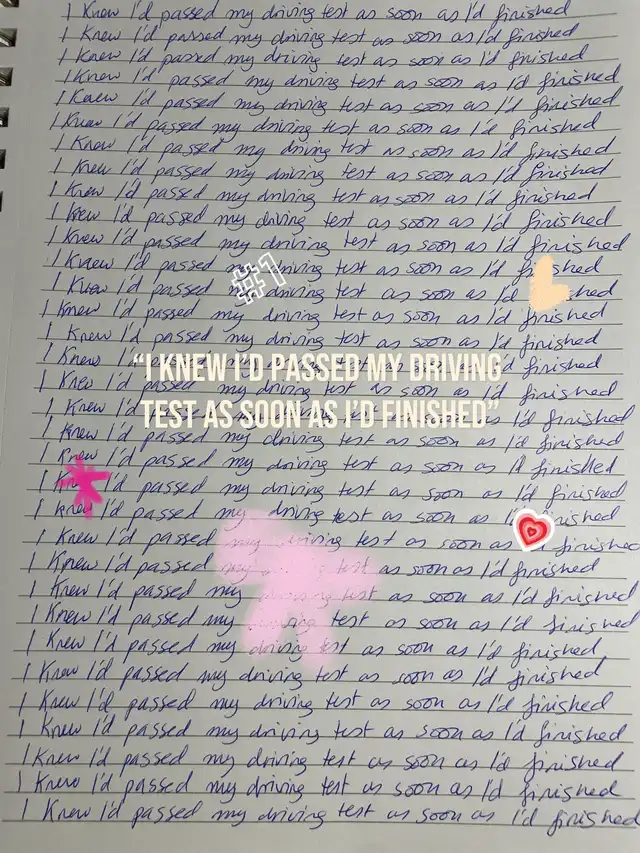 I Knew I'd passed my driving test as soon as I'd finished
I Knew I'd passed my driving test as soon as I'd finished
I Knew I'd passed my driving test as soon as I'd finished
I Knew I'd passed my driving test as soon as I'd finished
I Knew I'd passed my driving test as soon as I'd finished
I Knew I'd passed my driving test as soon as I'd finished
I Knew I'd passed my driving test as soon as I'd finished
I Knew I'd passed my driving test as soon as I'd finished
I Knew I'd passed my driving test as soon as I'd finished
I Knew I'd passed my driving test as soon as I'd finished
I Knew I'd passed my driving test as soon as I'd finished
I Knew I'd passed my driving test as soon as I'd finished
#1
I Knew I'd passed driving test as soon as I'd
I Knew I'd passed my driving test as soon as I'd finished
I Knew I'd passed my driving test as soon as I'd finished
I Knew I'd finished
"I KNEW I'D PASSED MY DRIVING
I Knew I'd passed my driving test as soon as I'd finished
TEST AS SOON AS I'D FINISHED"
I Knew I'd as I'd finished
I Knew I'd passed my driving test as soon as I'd finished
I Knew I'd passed my driving test as soon as I'd finished
I I'd passed my driving test as soon as I'd finished
I Knew I'd passed my driving test as soon as
I Knew I'd passed my driving test as soon as finished
I Knew I'd passed my test as soon as I'd finished
I Knew I'd passed my driving test as soon as I'd finished
I Knew I'd passed my test as soon as I'd finished
I Knew I'd passed my driving test as soon as I'd finished
I Knew I'd passed my driving test as soon as I'd finished
I Knew I'd passed my driving test as soon as I'd finished
I Knew I'd passed my driving test as soon as I'd finished
I Knew I'd passed my driving test as soon as I'd finished
I Knew I'd passed my driving test as soon as I'd finished
I Knew I'd passed my driving test as soon as I'd finished